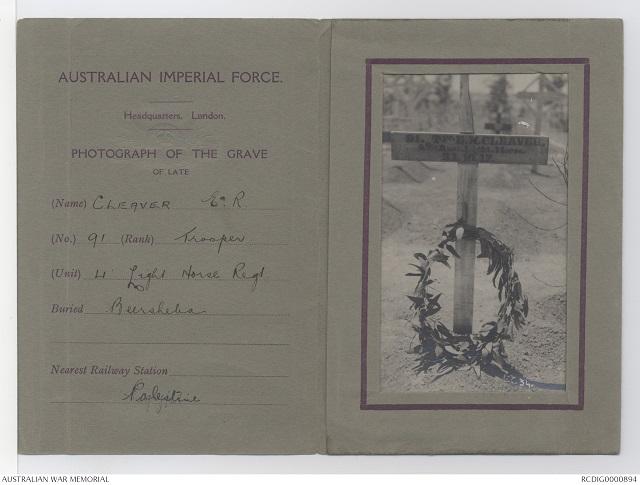 AUSTRALIAN IMPERIAL FORCE.
Headquarters, London.
PHOTOGRAPH OF THE GRAVE
OF LATE
(Name) CLEAVER E. R
(No.) 91 (Rank) Trooper
(Unit) 4 Light Horse Regt
Buried Beersheba
Nearest Railway Station
Palestine
91. Tpr E.R. CLEAVER.
31.10.17.
AUSTRALIAN WAR MEMORIAL
RCDIG0000894